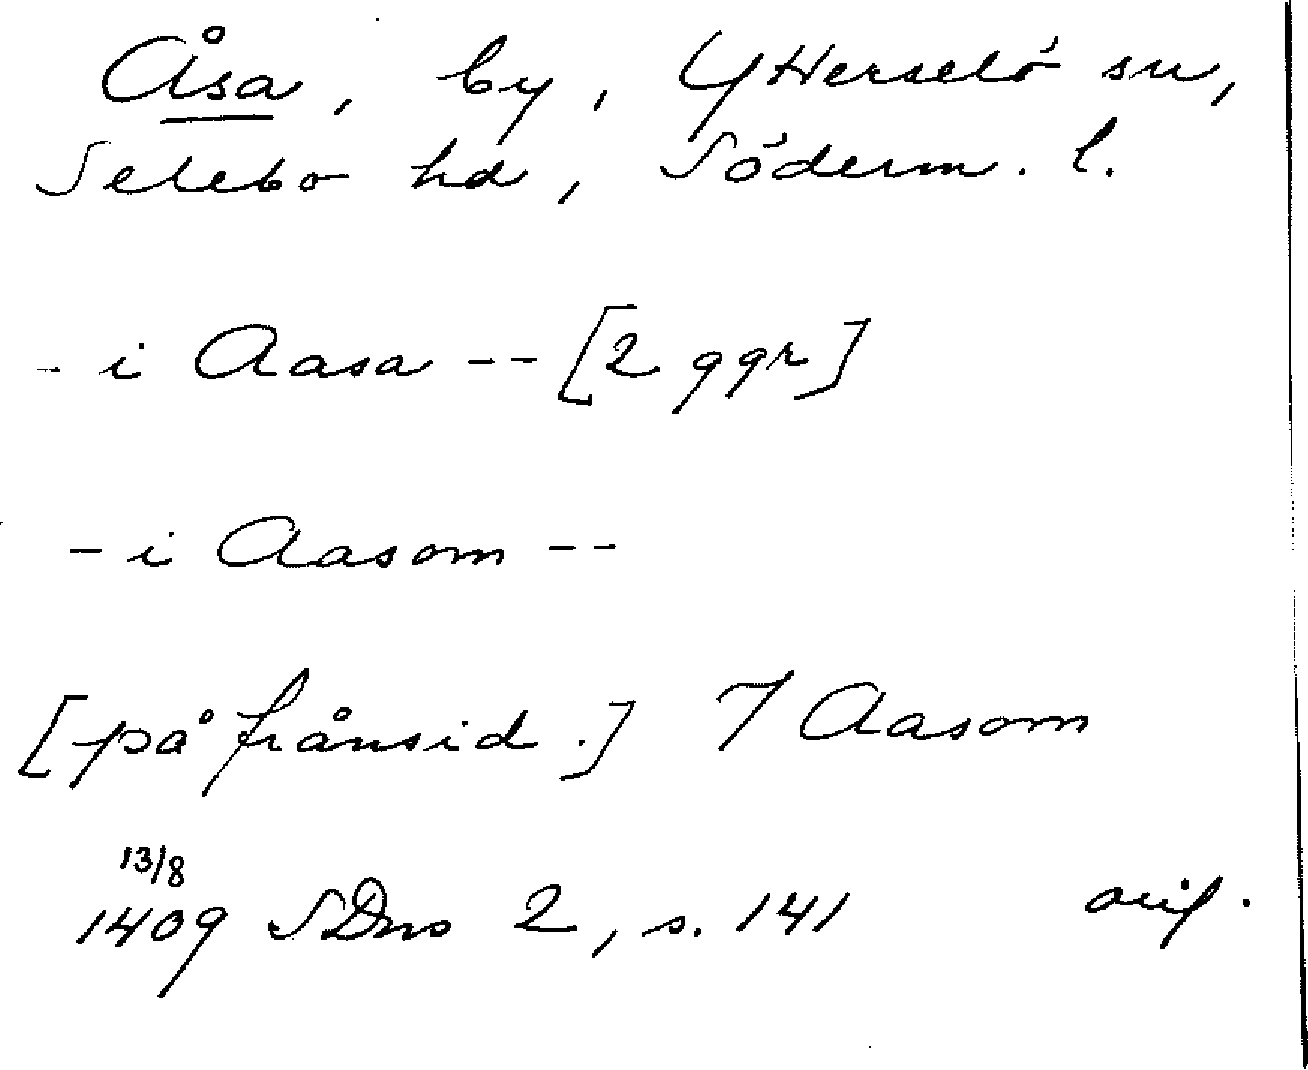 Åsa, by, Ytterselö sn,
Selebo hd, Söderm. l.
- i Aasa -- [2 ggr]
- i Aasom --
[på frånsid.] I Aasom
13/8
1409 SDns 2, s. 141 orig.